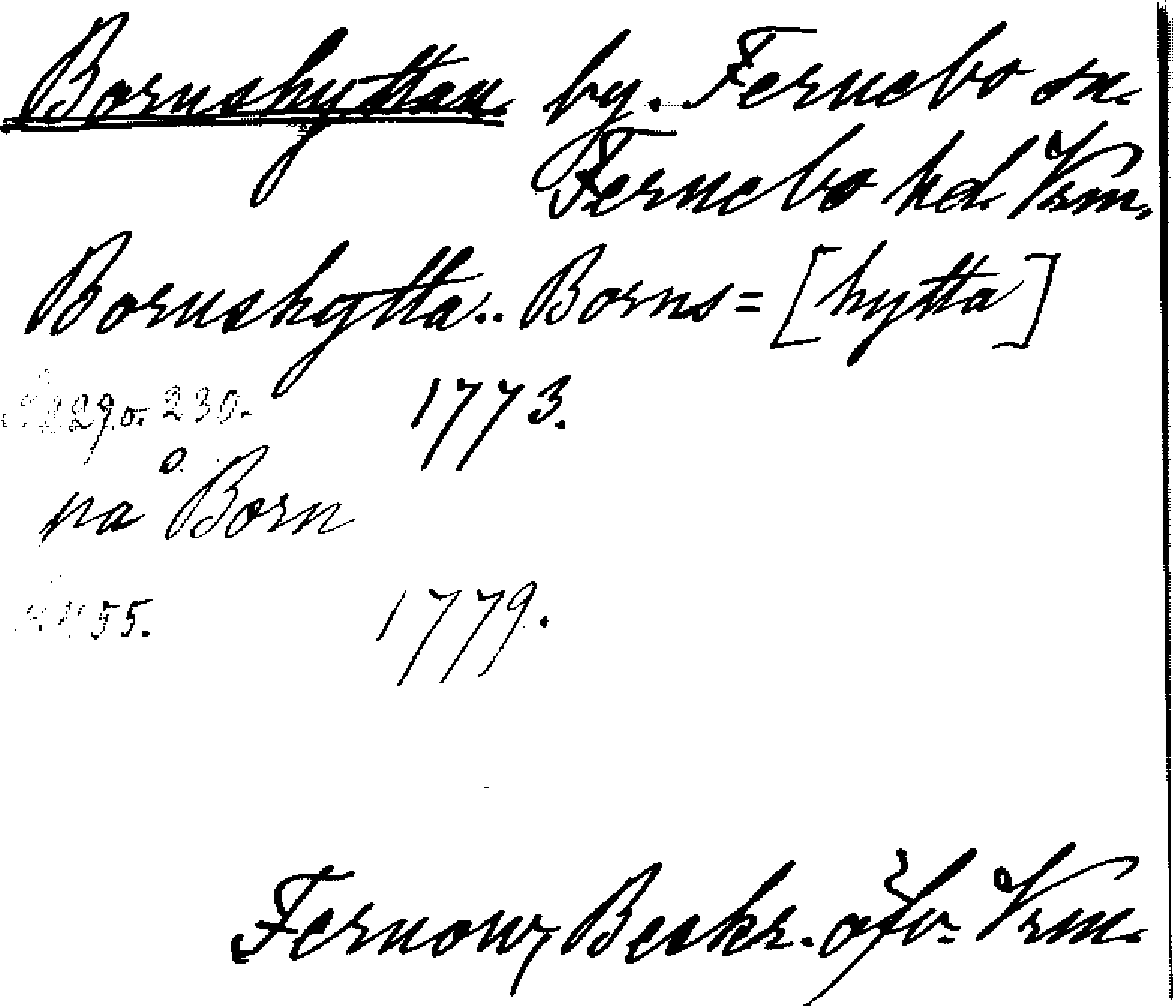 Bornshyttan by. Fernebo sn.
Fernebo hd. Vrm.
Bornshytta.. Borns=[hytta]
229 o. 230. 1773.
på Born
455. 1779.
Fernow, Beskr. öfv. Vrm.